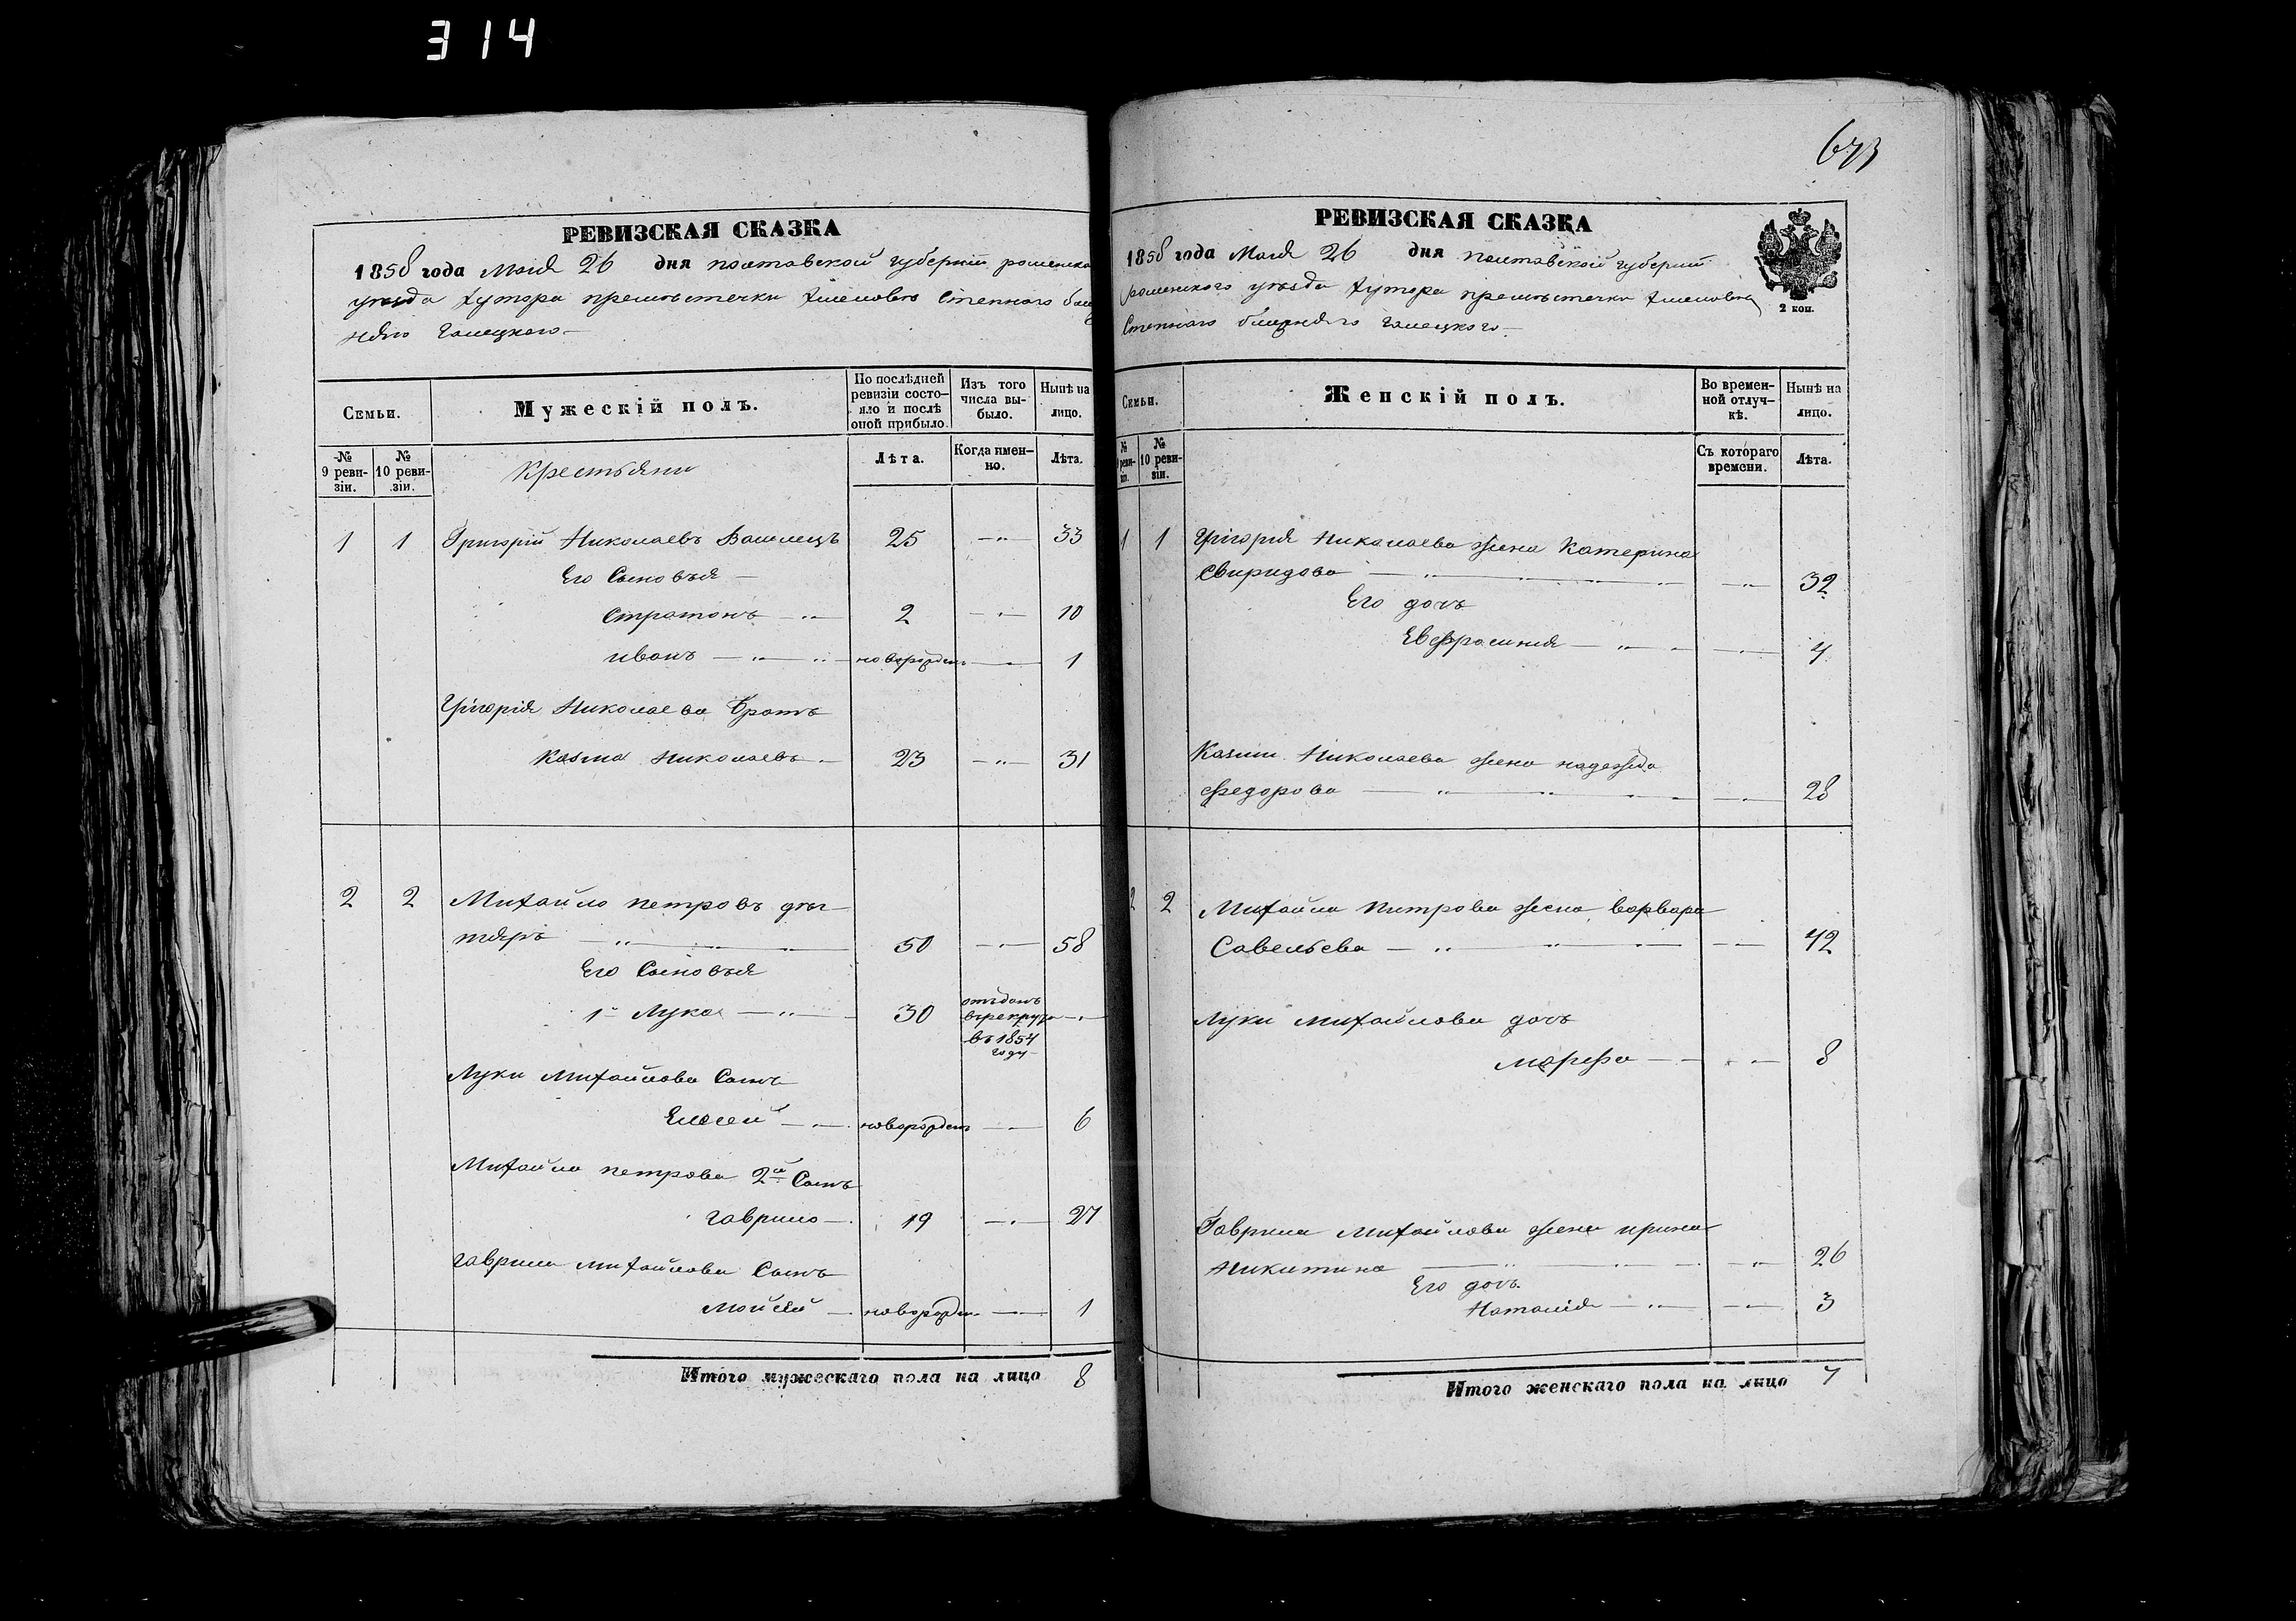 314
673
РЕВИЗСКАЯ СКАЗКА
1858 года Мая 26 дня полтавской губернии роменска
уезда хутора
Галецкого
Семьи.
Мужескій полъ.
По послѣдней ревизіи состо-яло и послѣ оной прибыло.
Изъ того числа вы-было.
Нынѣ на лицо.
№ 9 реви-зіи.
№ 10 реви-зіи.
Крестьяни
Лѣта.
Когда имен-но.
Лѣта.
1 1 Григорій Николаевъ 25 33
Его Сыновья
Стратонъ 2 10
иванъ новорожден 1
Григорія Николаева Братъ
Казма Николаевъ 23 31
2 2 Михайло петровъ дег-
тяръ 50 58
Его Сыновья
1й Лука 30 отъданъ
въ рекруты
въ 1854
году
Луки Михайлова Сынъ
Елесей новорожден 6
Михайла петрова 2й Сынъ
гаврило 19 27
гаврила михайлова Сынъ
Мойсей новорожден 1
Итого мужескаго пола на лицо 8
РЕВИЗСКАЯ СКАЗКА
1858 года Мая 26 дня полтавской губернии
роменского уезда хутора
Галецкого
2 коп.
Семьи.
Женскій полъ.
Во времен-ной отлуч-кѣ.
Нынѣ на лицо.
№ 9 реви-зіи.
№ 10 реви-зіи.
Съ котораго времени.
Лѣта.
1 1 Григорія Николаева жена Катерина
Свиридова 32
Его дочь
Евфросиния 4
Казми Николаева жена надежда
Федорова 28
2 2 Михайла Петрова жена варвара
Савельева 42
Луки Михайлова дочь
марфа 8
Гаврила Михайлова жена ирина
Никитина 26
Его дочь
Наталія 3
Итого женскаго пола на лицо 7